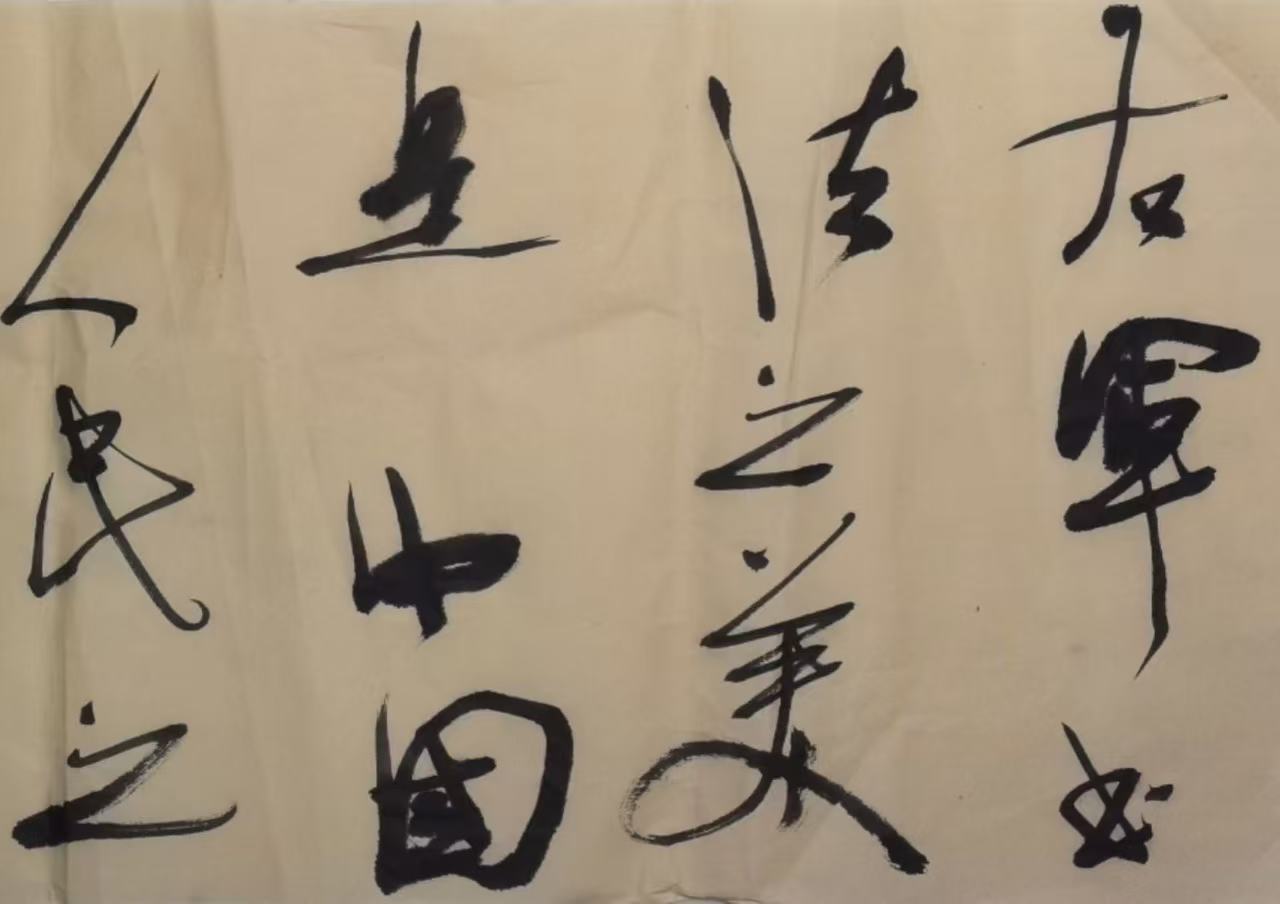 右軍书
法之美
是中國
人民之